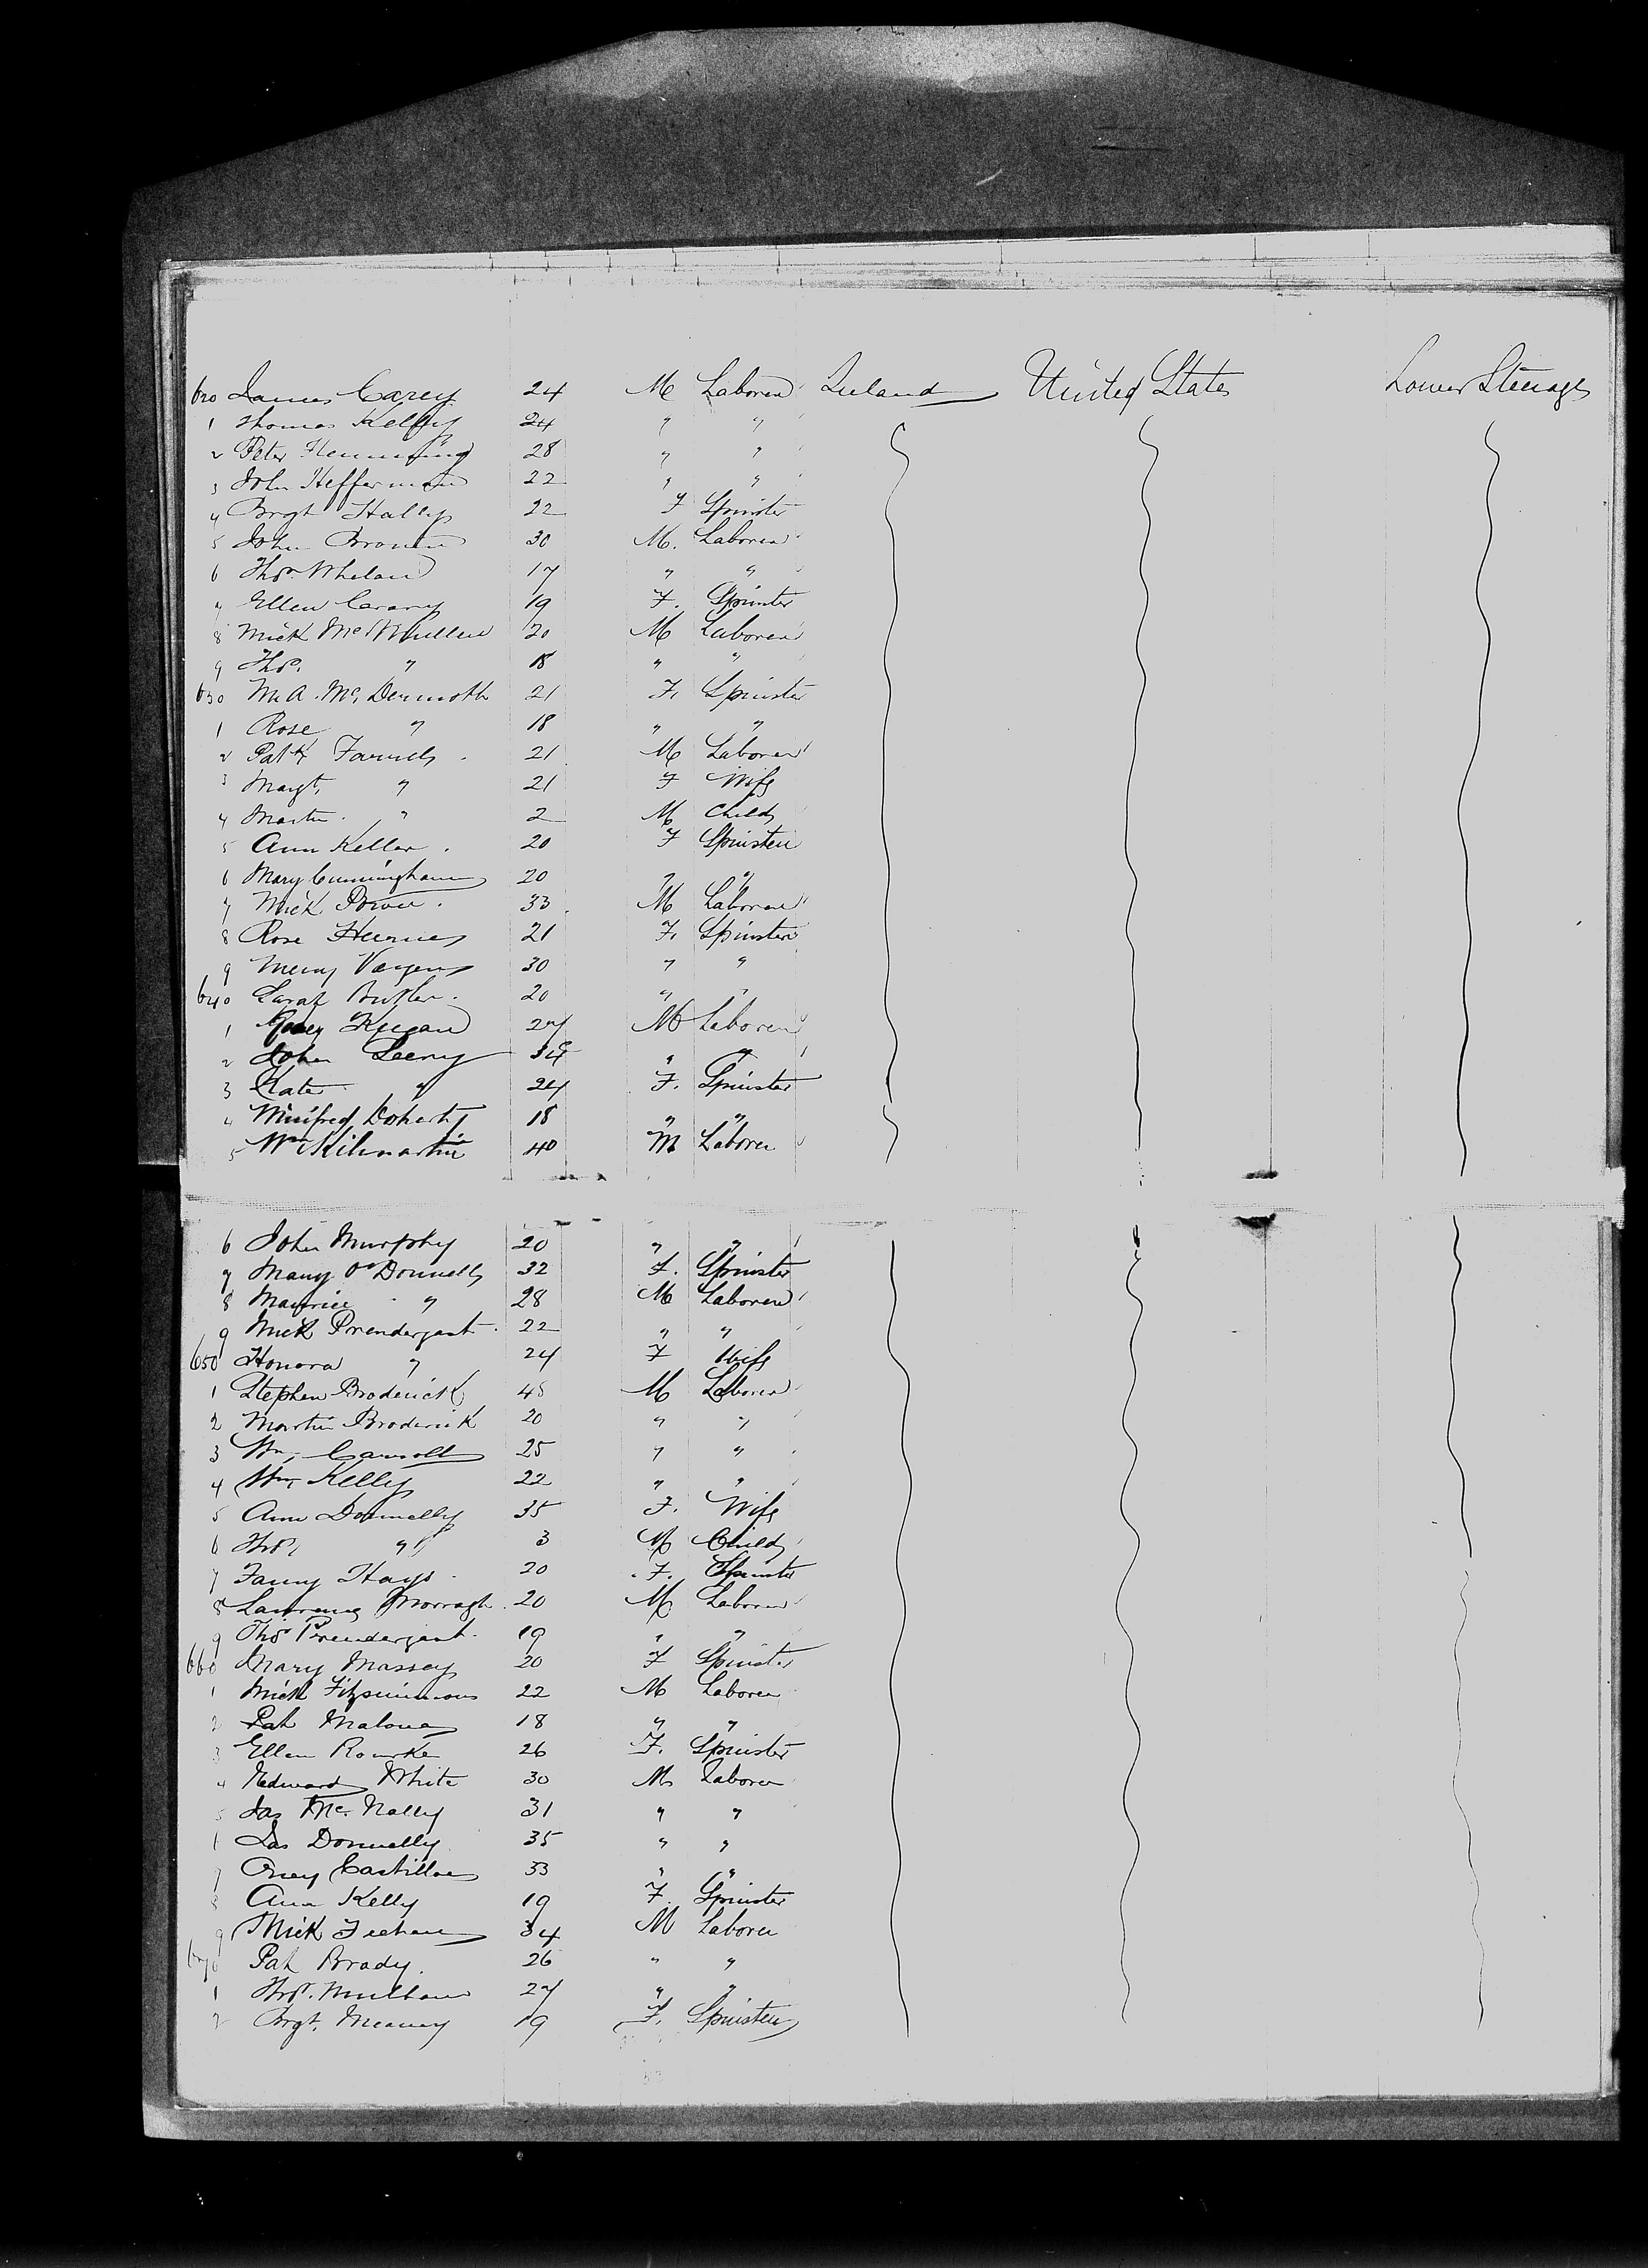 620 James Carey 24 M Laborer Ireland United States Lower Steerage
1 Thomas Kelly 24 " "
2 Peter Flemming 28 " "
3 John Heffernan 22 " "
4 Brgt Hally 22 F Spinster
5 John Brown 30 M. Laborer
6 Thos. Whelan 17 " "
7 Ellen 19 F. Spinster
8 Mick McMullen 20 M Laborer
9 Thos. " 18 " "
630 M.A. McDermott 21 F. Spinster
1 Rose " 18 " "
2 Patk 21 M Laborer
3 Margt. " 21 F Wife
4 Martin " 2 M Child
5 Ann Keller 20 F Spinster
6 Mary Cunningham 20 " "
7 Mick Power 33 M Laborer
8 Rose 21 F. Spinster
9 30 " "
640 Butler 20 " "
1 Keegan 27 M Laborer
2 John Leery " "
3 Kate " 24 F. Spinster
4 Winifred Doherty 18 " "
5 Wm Kilmartin 40 M Laborer
6 John Murphy 20 " "
7 Mary O'Donnell 32 F. Spinster
8 Maurice " 28 M Laborer
9 Mick Prendergast 22 " "
650 Honora " 24 F Wife
1 Stephen Broderick 45 M Laborer
2 Martin Broderick 20 " "
3 Wm. Carroll 25 " "
4 Wm. Kelly 22 " "
5 Ann Donnelly 35 F. Wife
6 Thos. " 3 M Child
7 Fanny Hays 20 F. Spinster
8 Lawrence Morragh 20 M Laborer
9 Thos Prendergast 19 " "
660 Mary Massey 20 F Spinster
1 Mick Fitzsimmons 22 M Laborer
2 Pat Malone 18 " "
3 Ellen Rourke 26 F. Spinster
4 Edward White 30 M Laborer
5 Jas McNally 31 " "
6 Jas Donnelly 35 " "
7 Castilloe 33 " "
8 Ann Kelly 19 F. Spinster
9 Mick Feehan 34 M Laborer
670 Pat Brady. 26 " "
1 Thos. 27 " "
2 Brgt. Meaney 19 F. Spinster